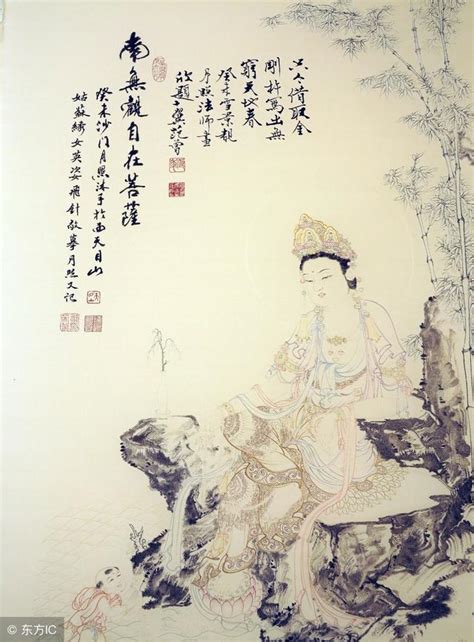 只今借取金
剛杵寫出無
窮天地春
癸未雪景觀
月照法師畫
敬題十翼范曾
南無觀自在菩薩
癸未沙门月照沐手於西天目山
姑蘇繡女英姿飛針敬摹月照又記
© 东方IC